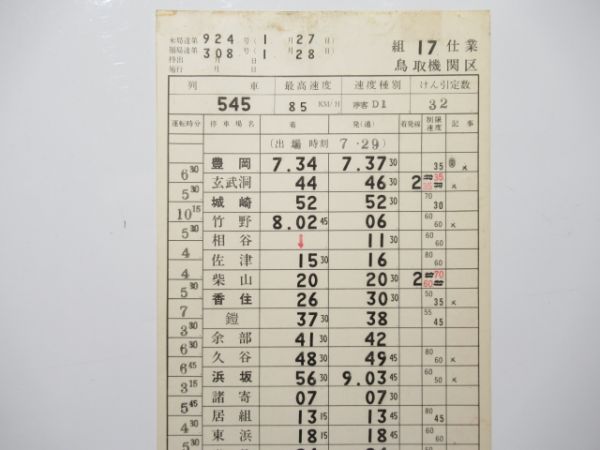 本局達第 924 号 (1月27日)
福局達第 308 号 (1月28日)
持出 月 日
施行 月 日
組 17 仕業
鳥取機関区
列車 最高速度 速度種別 けん引定数
545 85 KM/H 停客 D1 32
運転時分 停車場名 着 発(通) 着発線 制限速度 記事
(出場時刻 7.29)
豊岡 7.34 7.37 30 35 ×
6 30
玄武洞 44 46 30 2 35 35 ×
5 30
城崎 52 52 30 70 30
10 15
竹野 8.02 45 06 60 60 ×
5 30
相谷 ↓ 11 30 60 60
4
佐津 15 30 16 80 60
4
柴山 20 20 30 2 70 60
5 30
香住 26 30 30 50 35 ×
7
鎧 37 30 38 55 45
3 30
余部 41 30 42
6 30
久谷 48 30 49 45 80 60 ×
6 45
浜坂 56 30 9.03 45 60 50 ×
3 15
諸寄 07 07 30
5 45
居組 13 15 13 45 80 45
4 30
東浜 18 15 18 45 60 60
5 30